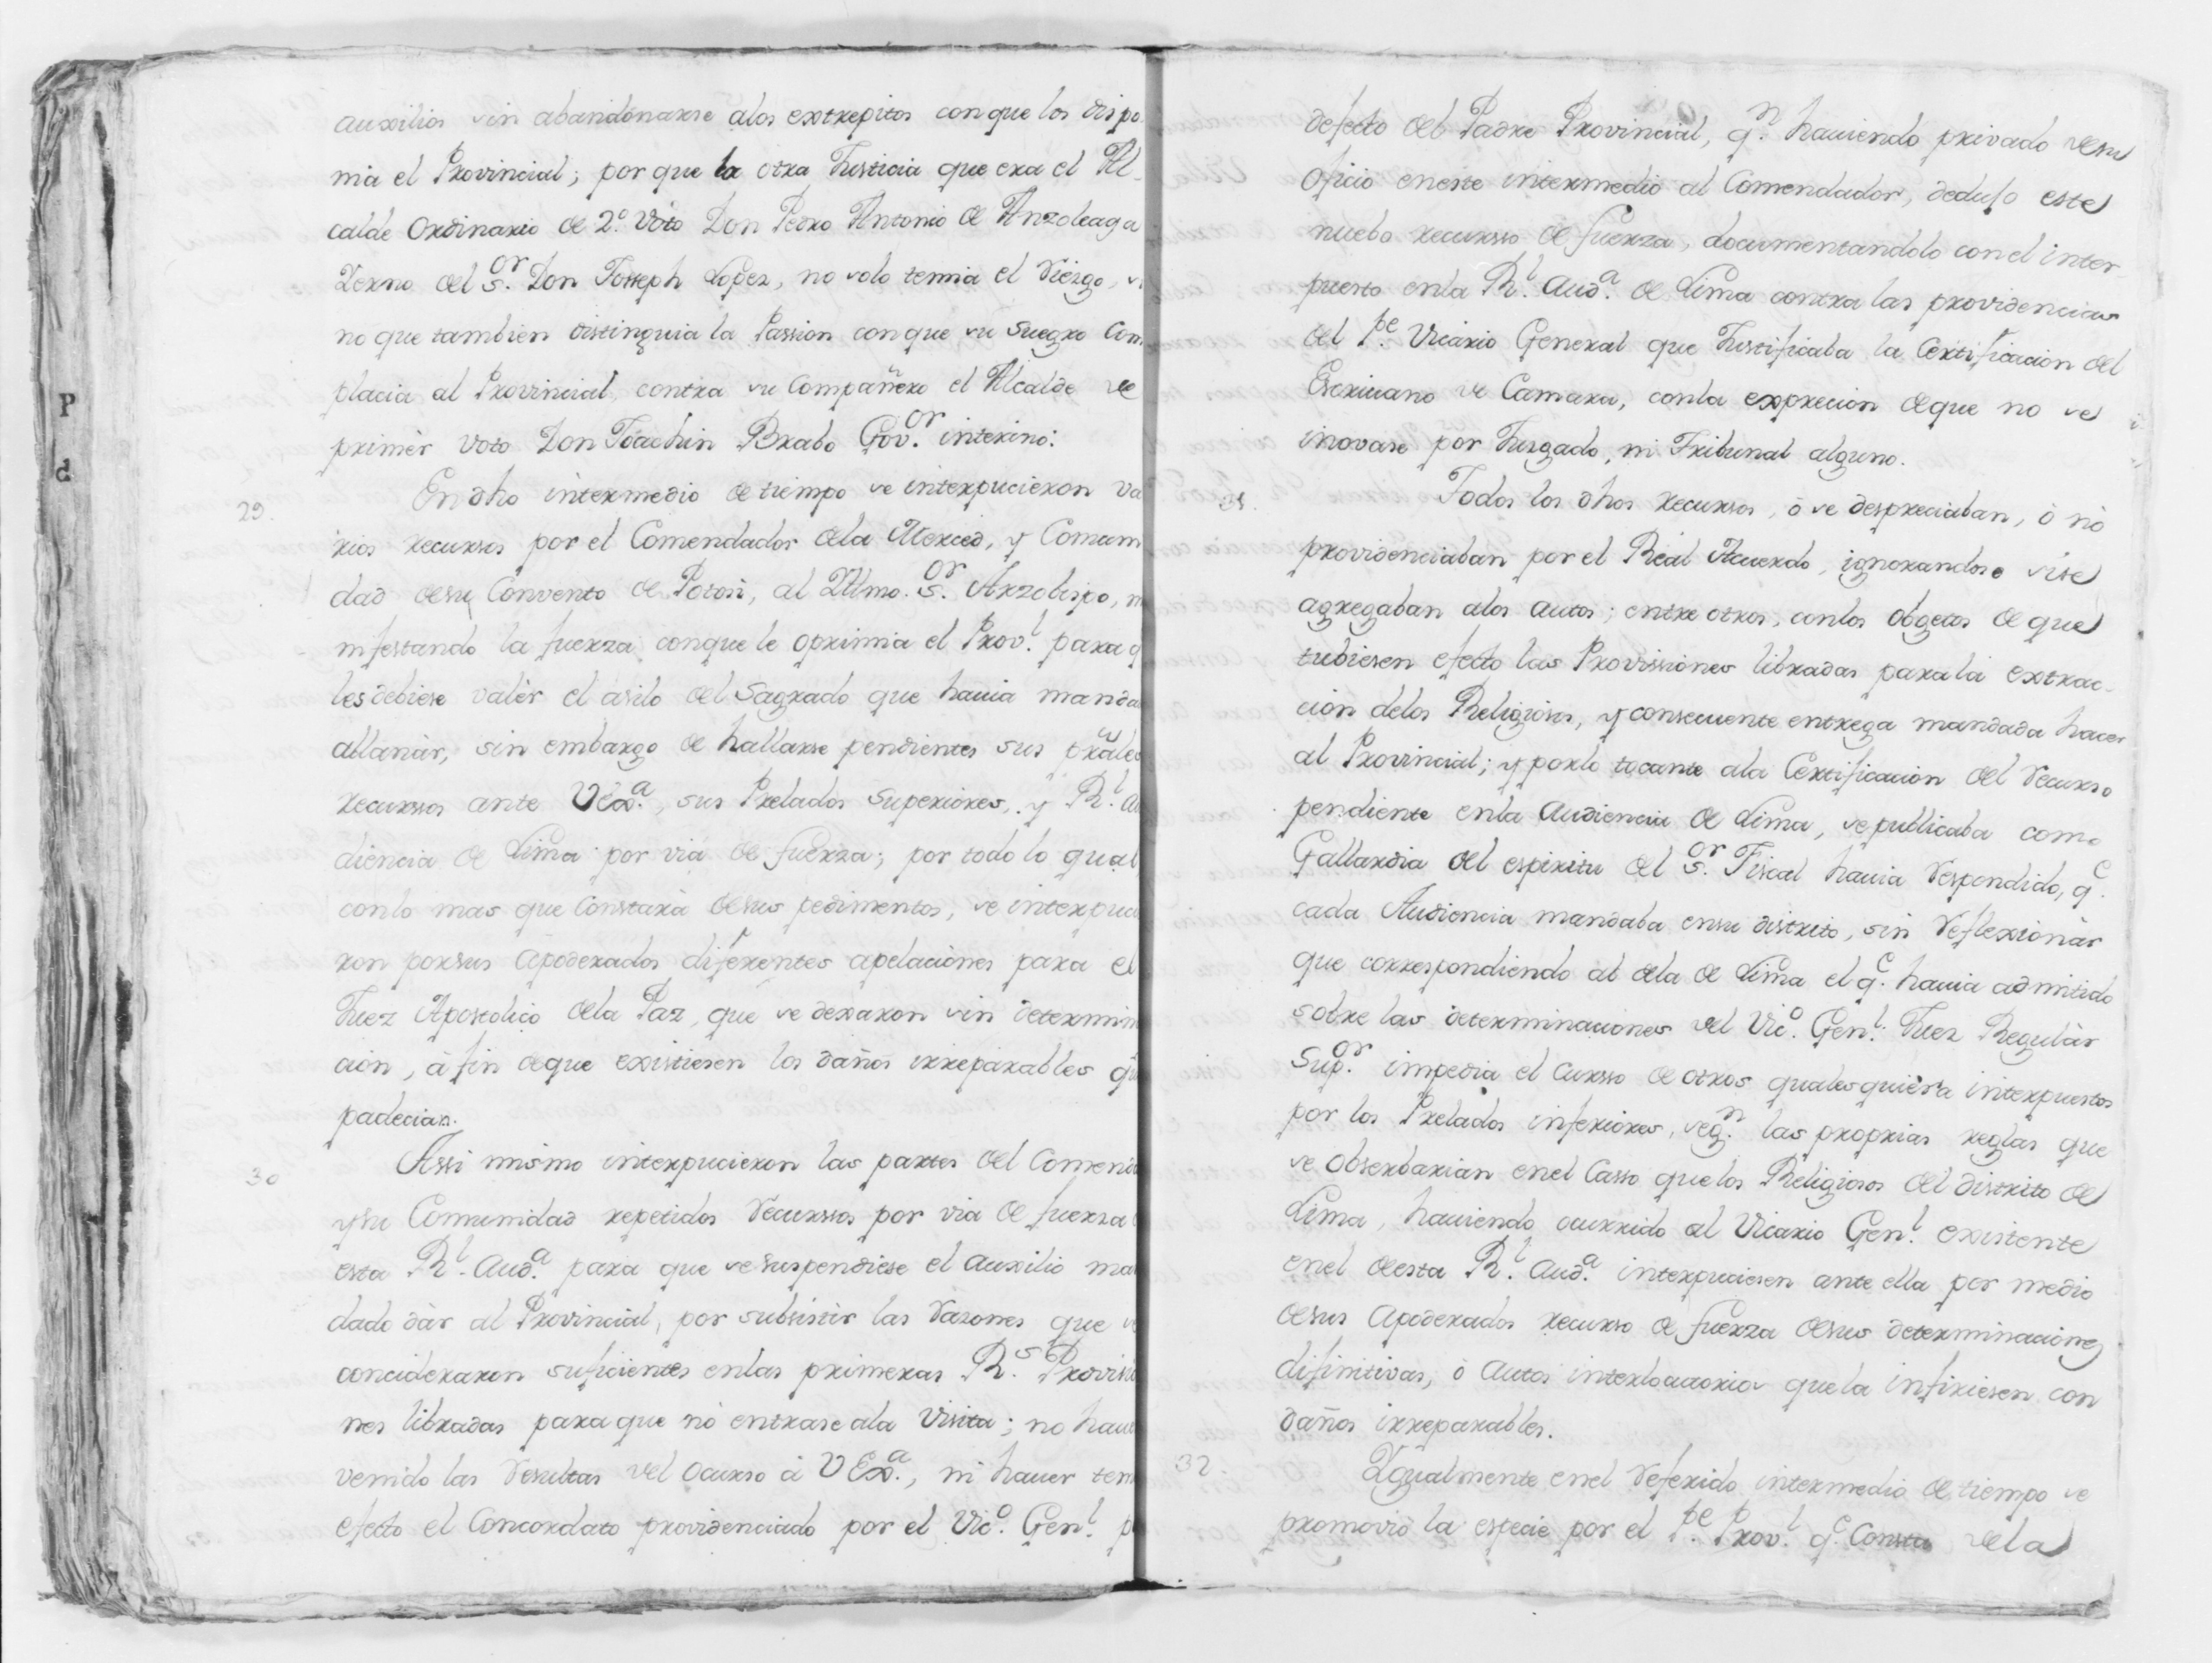 auxilios sin abandonarse alos extrepitos con que los dispo
nia el Provincial; por que la otra Justicia que era el Al-
calde Ordinario de 2.º Voto Don Pedro Antonio de Anzoleaga
Yerno del S.or Don Joseph Lopez, no solo temia el riezgo, si
no que tambien distinguia la Passion con que su Suegro Com
placia al Provincial, contra su Compañero el Alcalde de
primèr Voto Don Joachin Brabo Gov.or interino:
29. En dho intermedio de tiempo se interpucieron va
rios recursos por el Comendador dela Merced, y Comuni
dad desu Convento de Potosì, al Yllmo. S.or Arzobispo, m
nifestando la fuerza conque le oprimia el Prov.l para q
les debiese valèr el asilo del Sagrado que havia manda
allanàr, sin embargo de hallarse pendientes sus prâles
recurssos ante VEx.a, sus Prelados Superiores, y R.l Au
diencia de Lima por via de fuerza; por todo lo qual
con lo mas que Constarà desus pedimentos, se interpucie
ron por sus Apoderados diferentes apelaciònes para el
Juez Apostolico dela Paz, que se dexaron sin determin
cion, à fin deque existiesen los daños irreparables q
padecian.
30 Assi mismo interpucieron las partes del Comend
y su Comunidad repetidos recurssos por via de fuerza
esta R.l Aud.a para que se suspendiese el Auxilio ma
dado dàr al Provincial, por subsistir las razones que s
concideraron suficientes enlas primeras R.s Provisio
nes libradas para que nò entrase ala Visita; no haver
venido las resultas del Ocurso à VEx.a, ni haver ten
efecto el Concordato providenciado por el Vic.o Gen.l p
defecto del Padre Provincial, q.n haviendo privado desu
Oficio eneste intermedio al Comendador, dedujo este
nuebo recursso de fuerza, documentandolo con el inter
puesto enla R.l Aud.a de Lima contra las providencias
del P.e Vicario General que Justificaba la Certificacion del
Escrivano de Camara, conla exprecion deque no se
inovase por Jusgado, ni Tribunal alguno.
31. Todos los dhos recurssos, ò se despreciaban, ò nò
providenciaban por el Real Acuerdo, ignorandose sise
agregaban alos autos; entre otros, conlos obgetos de que
tubiesen efecto las Provissiones libradas parala extrac-
cion delos Religiosos, y consecuente entrega mandada hacer
al Provincial; y porlo tocante ala Certificacion del recurso
pendiente enla Audiencia de Lima, se publicaba como
Gallardia del espiritu del S.or Fiscal havia respondido, q.e
cada Audiencia mandaba ensu distrito, sin reflexionàr
que correspondiendo al dela de Lima el q.e havia admitido
sobre las determinaciones del Vic.o Gen.l Juez Regulàr
Sup.or impedia el Cursso de otros qualesquièra interpuestos
por los Prelados inferiores, seg.n las proprias reglas que
se Obserbarian enel Casso quelos Religiosos del distrito de
Lima, haviendo ocurrido al Vicario Gen.l existente
enel desta R.l Aud.a interpuciesen ante ella por medio
desus Apoderados recurso de fuerza desus determinaciones
difinitivas, ò Autos interlocutorios quela infiriesen con
daños irreparables.
32. Ygualmente enel referido intermedio de tiempo se
promoviò la especie por el P.e Prov.l q.e Consta dela